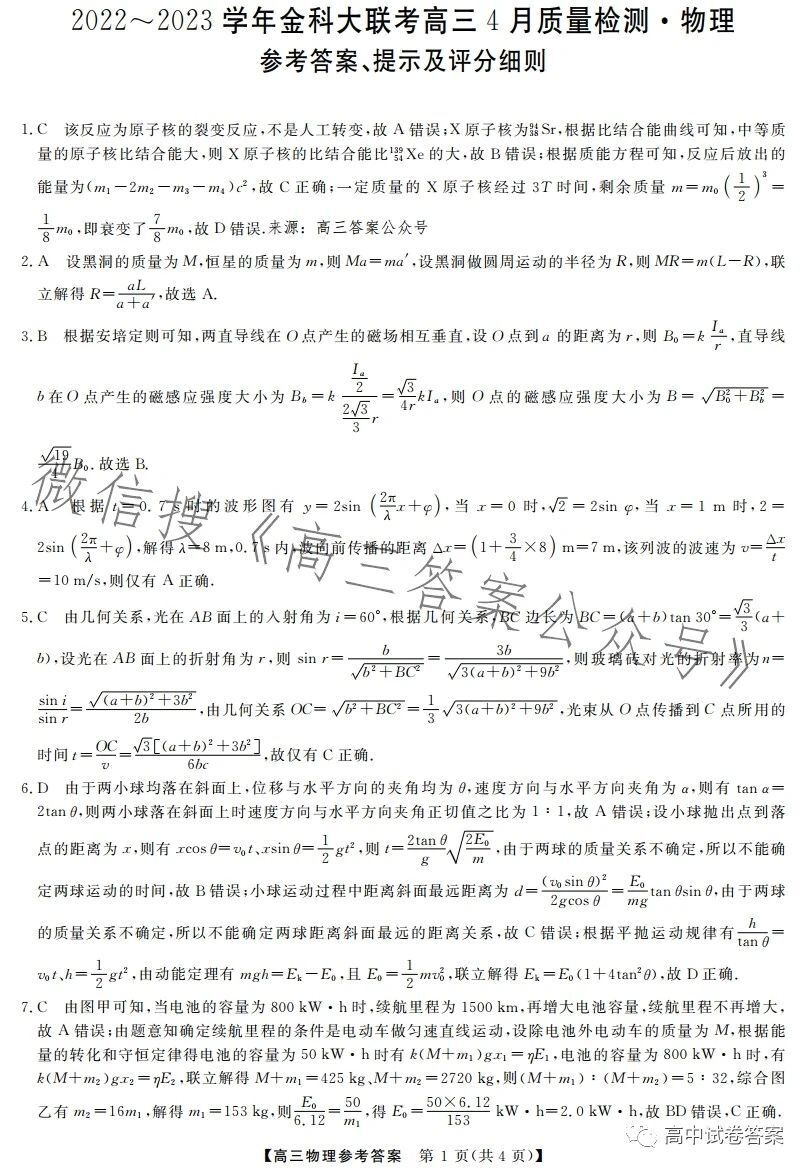 2022～2023 学年金科大联考高三 4 月质量检测·物理
参考答案、提示及评分细则
1. C 该反应为原子核的裂变反应,不是人工转变,故 A 错误;X 原子核为⁹⁴₃₈Sr,根据比结合能曲线可知,中等质
量的原子核比结合能大,则 X 原子核的比结合能比¹³⁹₅₄Xe 的大,故 B 错误;根据质能方程可知,反应后放出的
能量为(m₁－2m₂－m₃－m₄)c²,故 C 正确;一定质量的 X 原子核经过 3T 时间,剩余质量 m＝m₀(1/2)³＝
1/8 m₀,即衰变了7/8 m₀,故 D 错误.来源：高三答案公众号
2. A 设黑洞的质量为 M,恒星的质量为 m,则 Ma＝ma′,设黑洞做圆周运动的半径为 R,则 MR＝m(L－R),联
立解得 R＝aL/(a＋a′),故选 A.
3. B 根据安培定则可知,两直导线在 O 点产生的磁场相互垂直,设 O 点到 a 的距离为 r,则 B₀＝k Iₐ/r,直导线
b 在 O 点产生的磁感应强度大小为 B_b＝k (Iₐ/2)/((2√3/3)r)＝(√3/4r)kIₐ,则 O 点的磁感应强度大小为 B＝√(B₀²＋B_b²)＝
(√19/4)B₀.故选 B.
4. A 根据 t＝0.7 s 时的波形图有 y＝2sin(2π/λ x＋φ),当 x＝0 时,√2＝2sin φ,当 x＝1 m 时,2＝
2sin(2π/λ＋φ),解得 λ＝8 m,0.7 s 内,波向前传播的距离 Δx＝(1＋3/4×8) m＝7 m,该列波的波速为 v＝Δx/t
＝10 m/s,则仅有 A 正确.
5. C 由几何关系,光在 AB 面上的入射角为 i＝60°,根据几何关系,BC 边长为 BC＝(a＋b)tan 30°＝√3/3(a＋
b),设光在 AB 面上的折射角为 r,则 sin r＝b/√(b²＋BC²)＝3b/√(3(a＋b)²＋9b²),则玻璃砖对光的折射率为 n＝
sin i/sin r＝√((a＋b)²＋3b²)/2b,由几何关系 OC＝√(b²＋BC²)＝1/3√(3(a＋b)²＋9b²),光束从 O 点传播到 C 点所用的
时间 t＝OC/v＝√3[(a＋b)²＋3b²]/6bc,故仅有 C 正确.
6. D 由于两小球均落在斜面上,位移与水平方向的夹角均为 θ,速度方向与水平方向夹角为 α,则有 tan α＝
2tan θ,则两小球落在斜面上时速度方向与水平方向夹角正切值之比为 1∶1,故 A 错误;设小球抛出点到落
点的距离为 x,则有 xcos θ＝v₀t、xsin θ＝1/2 gt²,则 t＝(2tan θ/g)√(2E₀/m),由于两球的质量关系不确定,所以不能确
定两球运动的时间,故 B 错误;小球运动过程中距离斜面最远距离为 d＝(v₀sin θ)²/2gcos θ＝E₀/mg tan θsin θ,由于两球
的质量关系不确定,所以不能确定两球距离斜面最远的距离关系,故 C 错误;根据平抛运动规律有h/tan θ＝
v₀t、h＝1/2 gt²,由动能定理有 mgh＝Eₖ－E₀,且 E₀＝1/2 mv₀²,联立解得 Eₖ＝E₀(1＋4tan²θ),故 D 正确.
7. C 由图甲可知,当电池的容量为 800 kW·h 时,续航里程为 1500 km,再增大电池容量,续航里程不再增大,
故 A 错误;由题意知确定续航里程的条件是电动车做匀速直线运动,设除电池外电动车的质量为 M,根据能
量的转化和守恒定律得电池的容量为 50 kW·h 时有 k(M＋m₁)gx₁＝ηE₁,电池的容量为 800 kW·h 时,有
k(M＋m₂)gx₂＝ηE₂,联立解得 M＋m₁＝425 kg、M＋m₂＝2720 kg,则(M＋m₁)∶(M＋m₂)＝5∶32,综合图
乙有 m₂＝16m₁,解得 m₁＝153 kg,则E₀/6.12＝50/m₁,得 E₀＝50×6.12/153 kW·h＝2.0 kW·h,故 BD 错误,C 正确.
【高三物理参考答案 第 1 页(共 4 页)】
微信搜《高三答案公众号》
高中试卷答案